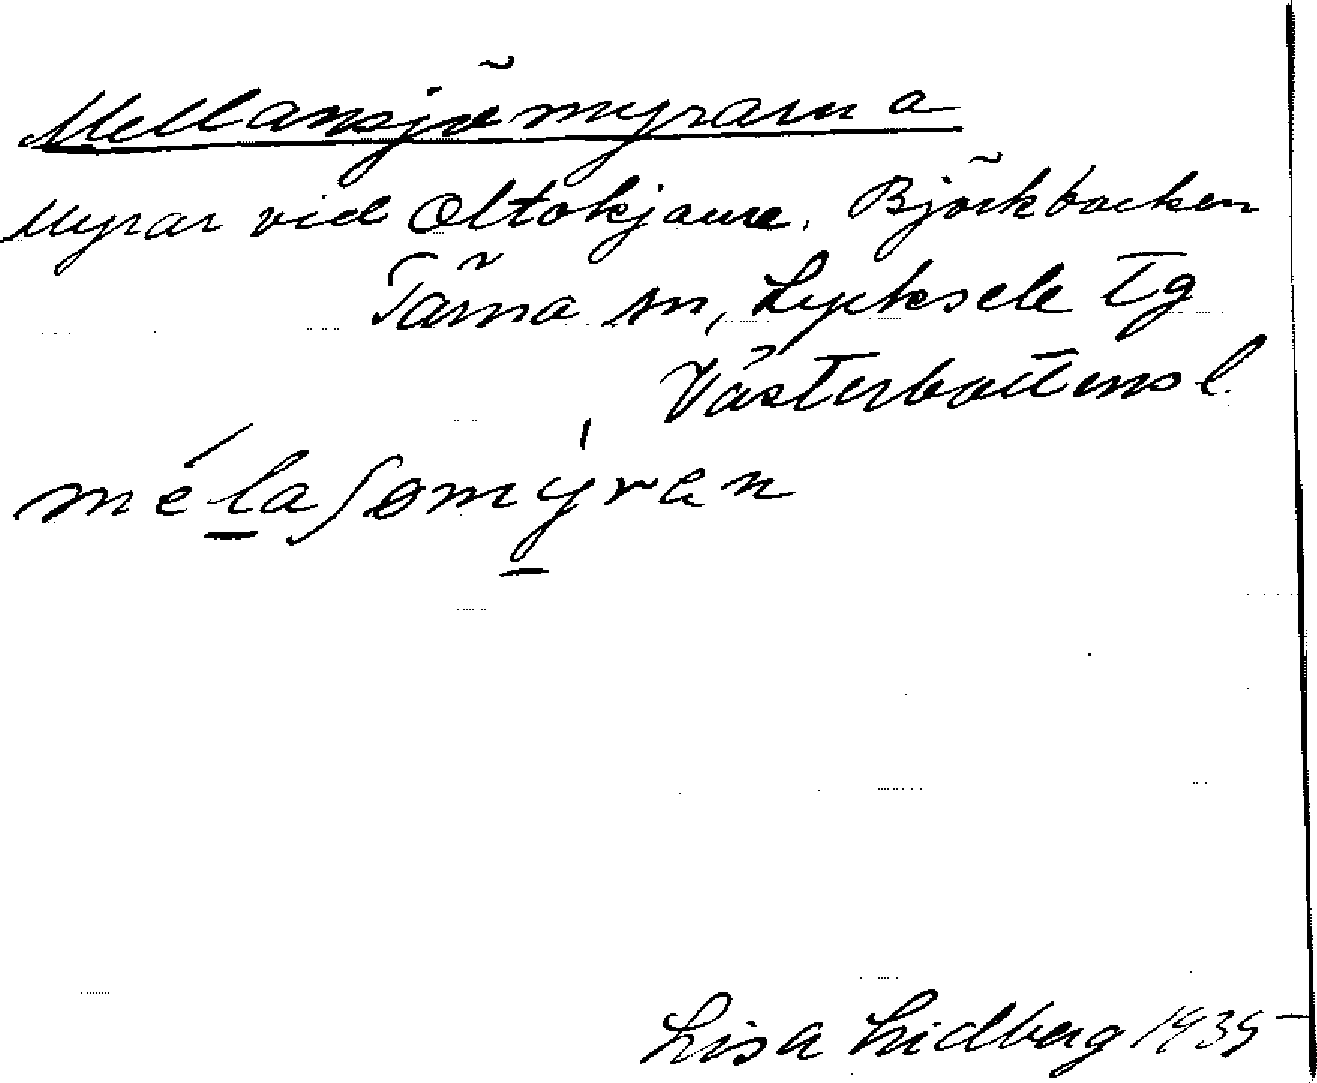 Mellansjömyrarna
Myrar vid Oltokjaure, Björkbacken
Tärna sn, Lycksele Tg
Västerbottens l.
mélaʃømýran
Lisa Lidberg 1935